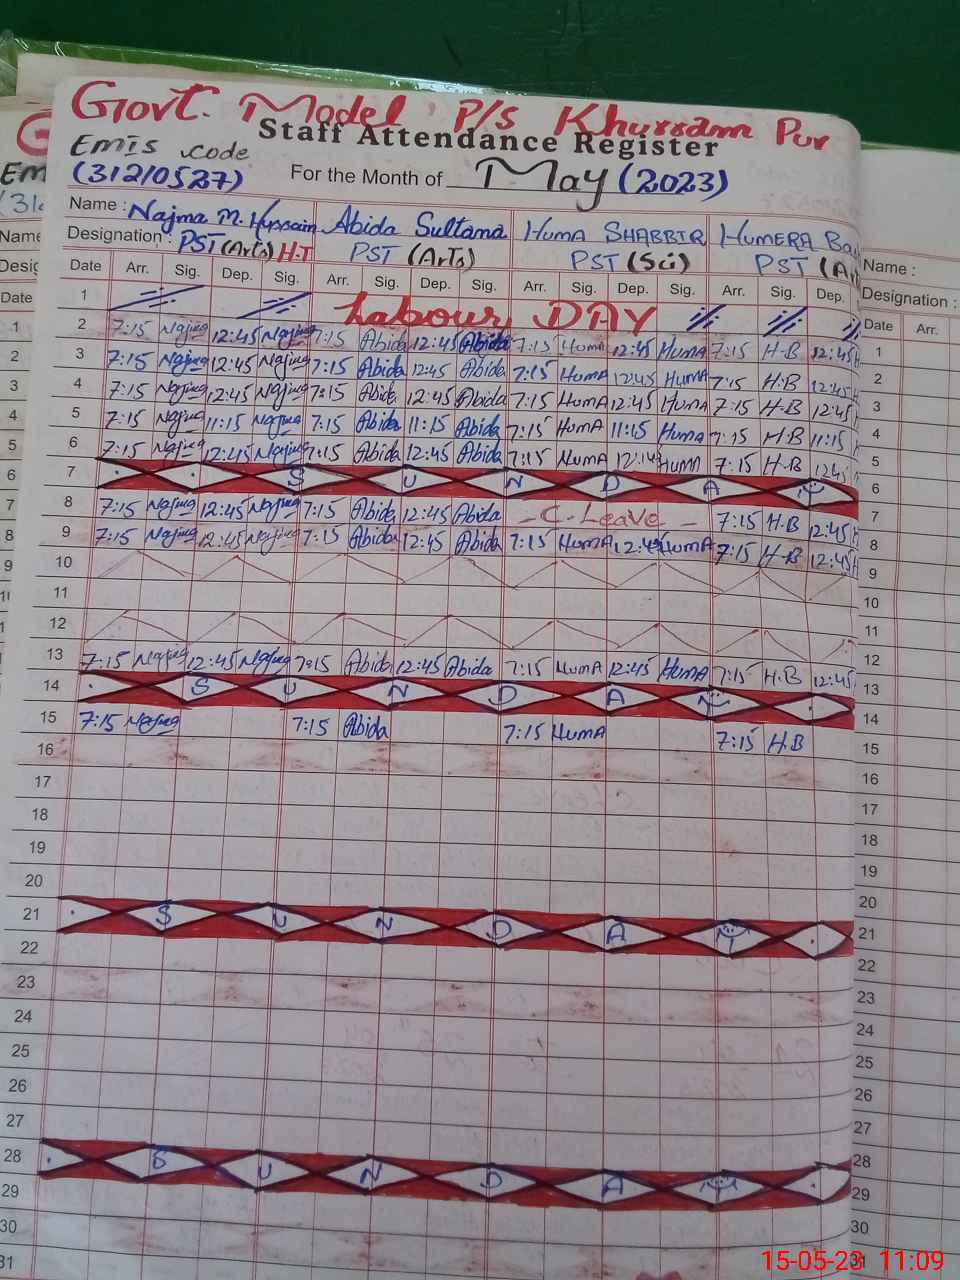 Govt. Model P/S Khurram Pur
Staff Attendance Register
Emis Code
(31210527) For the Month of May (2023)
Name : Najma M. Hussain Abida Sultana HUMA SHABBIR HUMERA Ba
Designation : PST (Arts) H.T PST (Arts) PST (Sci) PST (A
Date Arr. Sig. Dep. Sig. Arr. Sig. Dep. Sig. Arr. Sig. Dep. Sig. Arr. Sig. Dep.
1 Labour DAY
2 7:15 Najma 12:45 Najma 7:15 Abida 12:45 Abida 7:15 Huma 12:45 HumA 7:15 H-B 12:45
3 7:15 Najma 12:45 Najma 7:15 Abida 12:45 Abida 7:15 HumA 12:45 HumA 7:15 H.B 12:45
4 7:15 Najma 12:45 Najma 7:15 Abida 12:45 Abida 7:15 HumA 12:45 HumA 7:15 H-B 12:45
5 7:15 Najma 11:15 Najma 7:15 Abida 11:15 Abida 7:15 HumA 11:15 HumA 7:15 H-B 11:15
6 7:15 Najma 12:45 Najma 7:15 Abida 12:45 Abida 7:15 HumA HumA 7:15 H-B 12:45
7 S U N D A Y
8 7:15 Najma 12:45 Najma 7:15 Abida 12:45 Abida - C. Leave - 7:15 H.B 12:45
9 7:15 Najma 12:45 Najma 7:15 Abida 12:45 Abida 7:15 HumA 12:45 HumA 7:15 H-B 12:45
10
11
12
13 7:15 Najma 12:45 Najma 7:15 Abida 12:45 Abida 7:15 HumA 12:45 HumA 7:15 H.B 12:45
14 S U N D A Y
15 7:15 Najma 7:15 Abida 7:15 HumA 7:15 H.B
16
17
18
19
20
21 S U N D A Y
22
23
24
25
26
27
28 S U N D A Y
29
30
31
Name :
Designation :
Date Arr.
1
2
3
4
5
6
7
8
9
10
11
12
13
14
15
16
17
18
19
20
21
22
23
24
25
26
27
28
29
30
31
15-05-23 11:09